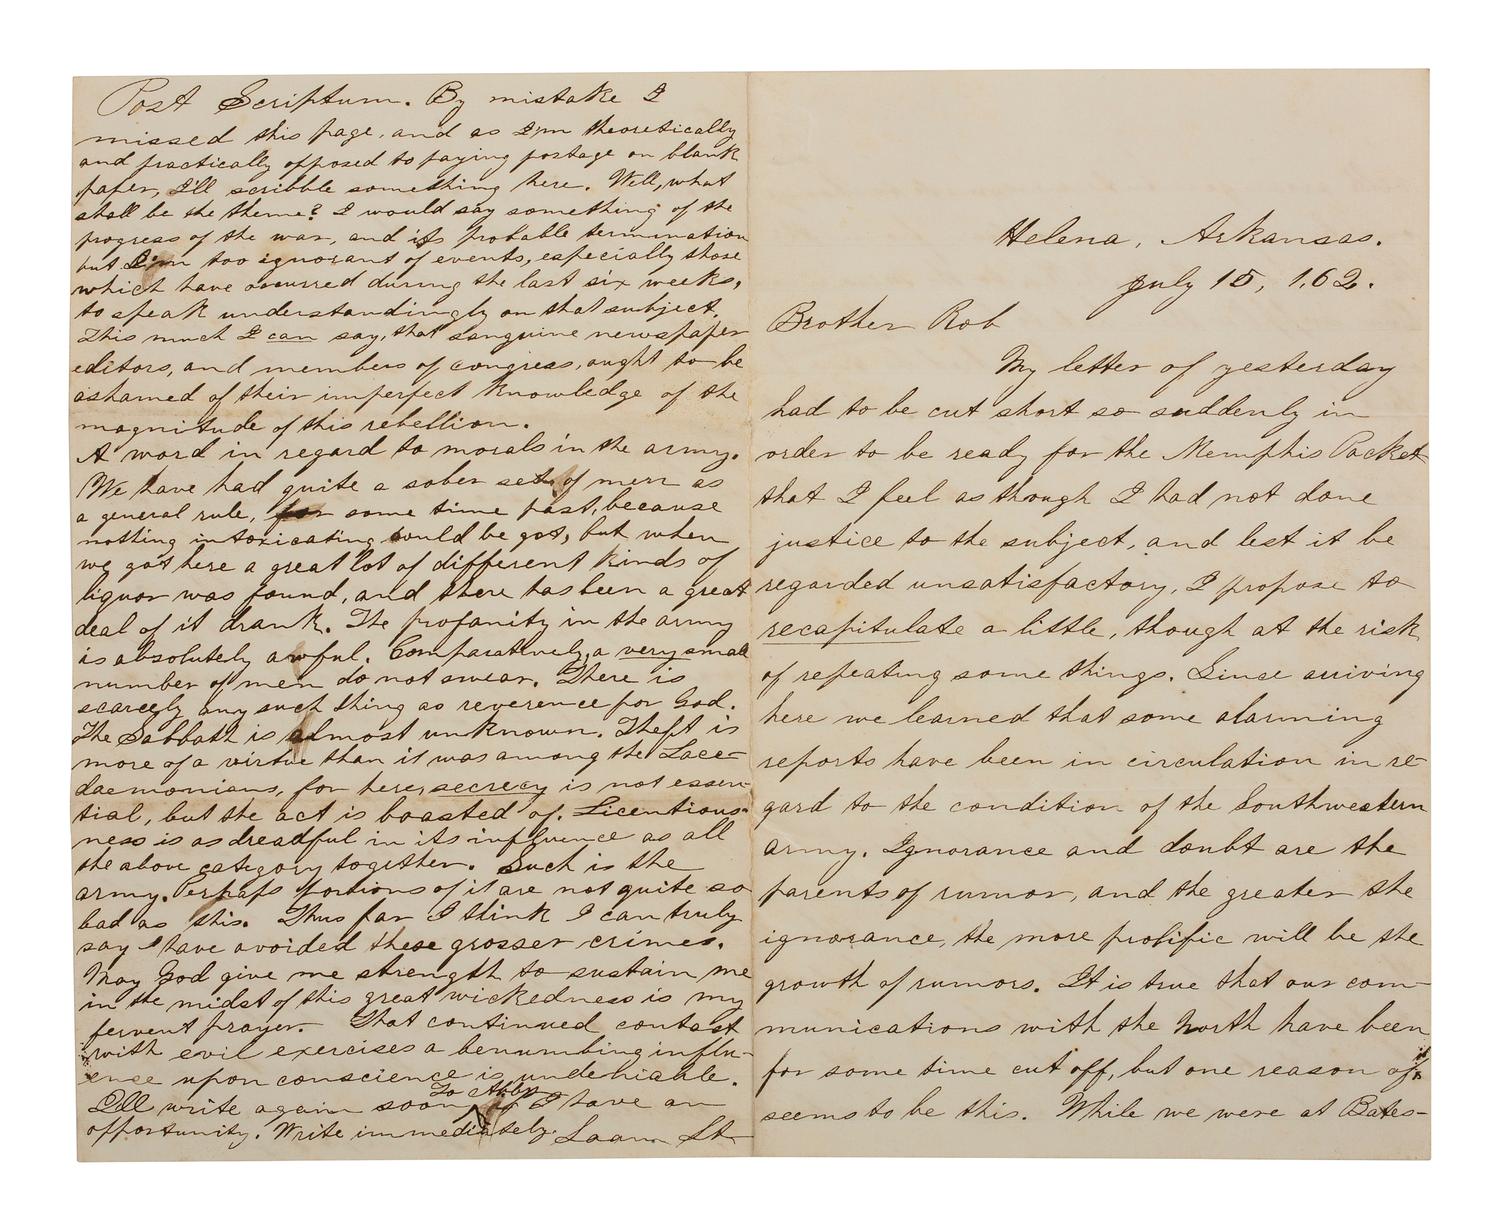 Post Scriptum. By mistake I
missed this page, and as I'm theoretically
and practically opposed to paying postage on blank
paper, I'll scribble something here. Well, what
shall be the theme? I would say something of the
progress of the war, and its probable termination
but I'm too ignorant of events, especially those
which have occurred during the last six weeks,
to speak understandingly on that subject.
This much I can say, that sanguine newspaper
editors, and members of congress, ought to be
ashamed of their imperfect knowledge of the
magnitude of this rebellion.
A word in regard to morals in the army.
We have had quite a sober set of men as
a general rule, for some time past, because
nothing intoxicating could be got, but when
we got here a great lot of different kinds of
liquor was found, and there has been a great
deal of it drank. The profanity in the army
is absolutely awful. Comparatively, a very small
number of men do not swear. There is
scarcely any such thing as reverence for God.
The Sabbath is almost unknown. Theft is
more of a virtue than it was among the Lace-
daemonians, for here, secrecy is not essen-
tial, but the act is boasted of. Licentious-
ness is as dreadful in its influence as all
the above category together. Such is the
army. Perhaps portions of it are not quite so
bad as this. Thus far I think I can truly
say I have avoided these grosser crimes.
May God give me strength to sustain me
in the midst of this great wickedness is my
fervent prayer. That continued contact
with evil exercises a benumbing influ-
ence upon conscience is undeniable.
I'll write again soon To Abby if I have an
opportunity. Write immediately.
Helena, Arkansas.
July 15, 1,62.
Brother Rob
My letter of yesterday
had to be cut short so suddenly in
order to be ready for the Memphis Packet
that I feel as though I had not done
justice to the subject, and lest it be
regarded unsatisfactory, I propose to
recapitulate a little, though at the risk
of repeating some things. Since arriving
here we learned that some alarming
reports have been in circulation in re-
gard to the condition of the Southwestern
army. Ignorance and doubt are the
parents of rumor, and the greater the
ignorance, the more prolific will be the
growth of rumors. It is true that our com-
munications with the North have been
for some time cut off, but one reason of it
seems to be this. While we were at Bates-